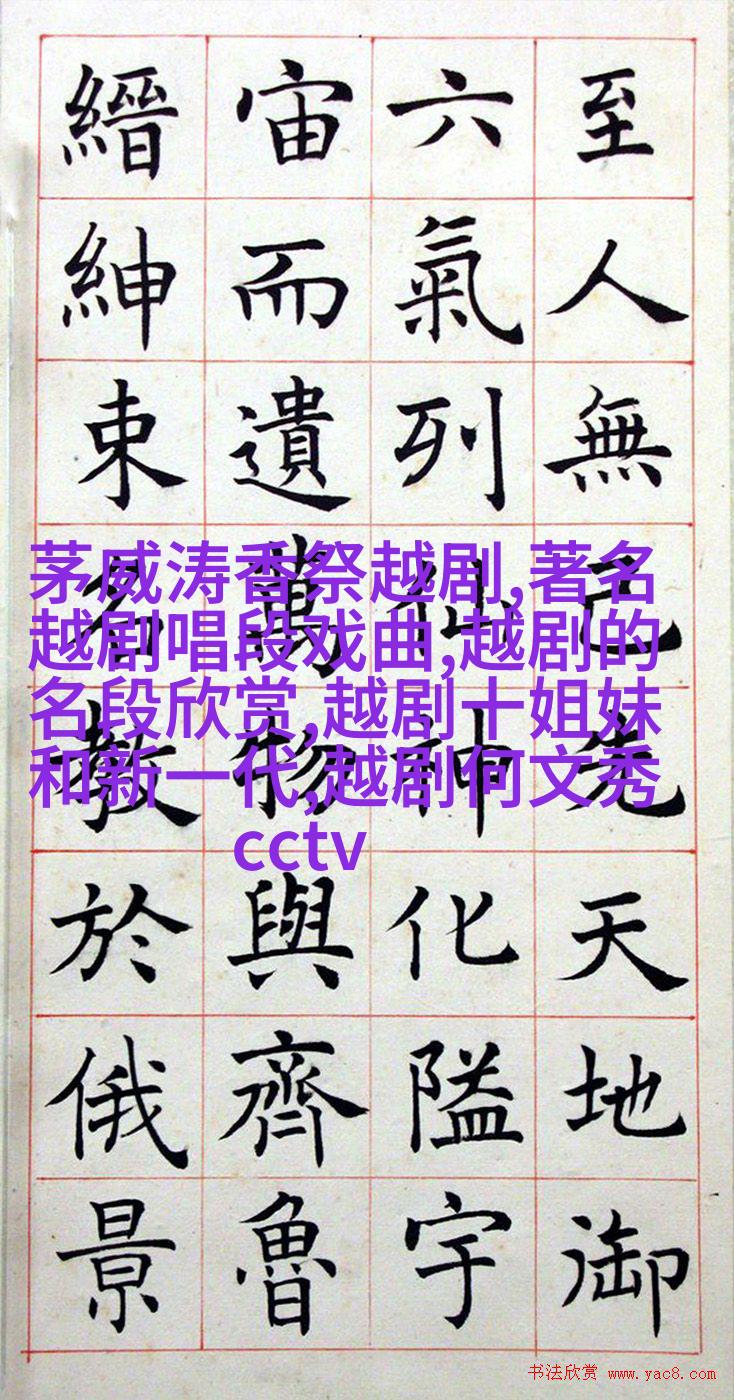 至人無己先天地御
六氣列仙神化隘宇
宙而遺萬物與齊魯
縉紳束名教於俄景
茅威涛香祭越剧,著名
越剧唱段戏曲,越剧的
名段欣赏,越剧十姐妹
和新一代,越剧何文秀
cctv
书法欣赏 www.yac8.com